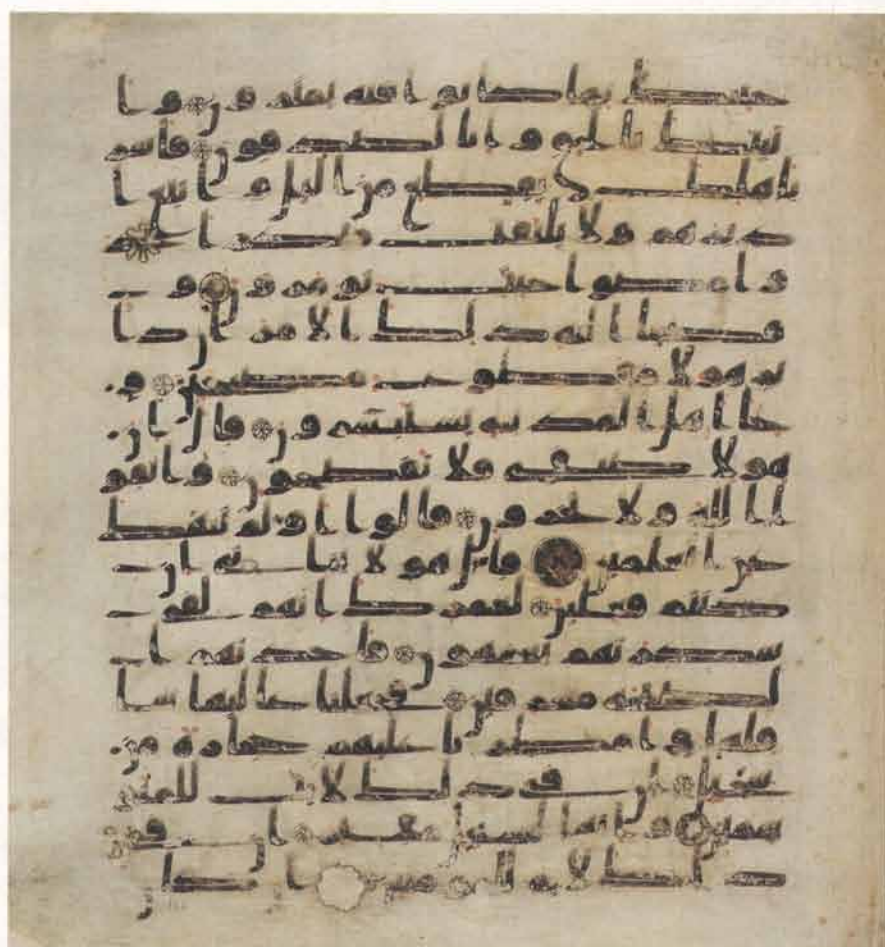 جينك بما كانوا فيه يمترون وا
تينك بالحق وانا لصدقون فاسر
باهلك بقطع من اليل واتبع ا
دبرهم ولا يلتفت منكم احد
وامضوا حيث تومرون و
قضينا اليه ذلك الامر ان دا
بر هولا مقطوع مصبحين و
جا اهل المدينة يستبشرون قال ان
هولا ضيفي فلا تفضحون واتقو
ا الله ولا تخزون قالوا اولم ننهك
عن العلمين قال هولا بناتي ان
كنتم فعلين لعمرك انهم لفي
سكرتهم يعمهون فاخذتهم ا
لصيحة مشرقين فجعلنا عليها سا
فلها وامطرنا عليهم حجارة من
سجيل ان في ذلك لايت للمتو
سمين وانها لبسبيل مقيم ان في
ذلك لاية للمومنين وان كان